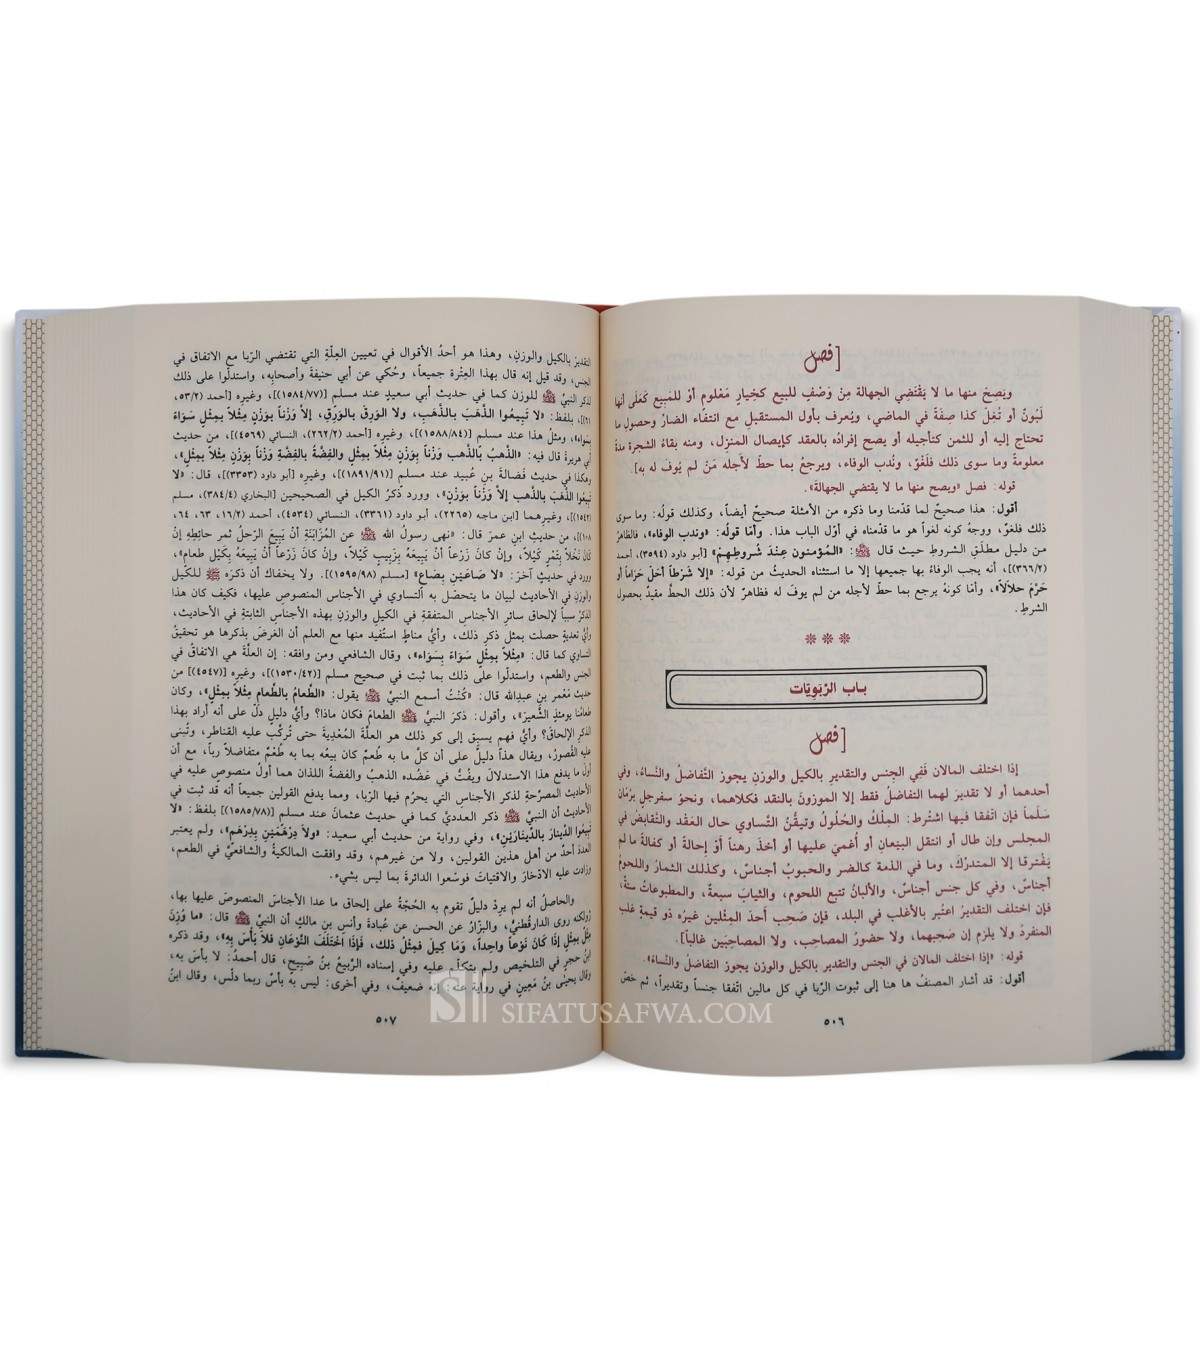 [فصل
ويَصِحّ منها ما لا يَقْتَضِي الجهالة مِنْ وَصْفٍ للبيع كخِيارٍ مَعْلومٍ أوْ للمَبيع كَعَلَى أنها
لَبُونٌ أو تُغِلّ كذا صِفةً في الماضي، ويُعرف بأول المستقبلِ مع انتفاء الضارّ وحصولِ ما
تحتاج إليه أو للثمن كتأجيله أو يصح إفرادُه بالعقد كإيصال المنزل، ومنه بقاءُ الشجرة مدةً
معلومةً وما سوى ذلك فلَغْوٌ، ونُدب الوفاء، ويرجعُ بما حطّ لأجله مَنْ لم يُوفَ له به].
قوله: فصل «ويصح منها ما لا يقتضي الجهالة».
أقول: هذا صحيحٌ لما قدّمنا وما ذكره من الأمثلة صحيحٌ أيضاً، وكذلك قولُه: وما سوى
ذلك فلغوٌ، ووجهُ كونه لغواً هو ما قدّمناه في أوّل الباب هذا. وأمّا قولُه: «وندب الوفاء»، فالظاهرُ
من دليل مطلَقِ الشروطِ حيث قال ﷺ: «المؤمنون عِنْدَ شُروطِهِمْ» [أبو داود (٣٥٩٤)، أحمد
(٣٦٦/٢)]، أنه يجب الوفاءُ بها جميعها إلا ما استثناه الحديثُ من قوله: «إلا شَرْطاً أحَلّ حَرَاماً أو
حَرّمَ حلالاً»، وأمّا كونُه يرجع بما حطّ لأجله من لم يوفَ له فظاهرٌ لأن ذلك الحطَّ مقيدٌ بحصول
الشرطِ.
باب الرّبَويّات
[فصل
إذا اختلف المالان ففِي الجِنس والتقديرِ بالكيل والوزنِ يجوز التّفاضلُ والنّساءُ، وفي
أحدهما أو لا تقديرَ لهما التفاضلُ فقط إلا الموزونَ بالنقد فكلاهما، ونحوَ سفرجلٍ برُمّان
سَلَماً فإن اتّفقا فيها اشتُرط: المِلْكُ والحُلُولُ وتيقُّنُ التّساوي حال العَقْد والتّقابضُ في
المجلس وإن طال أو انتقل البَيّعانِ أو أُغميَ عليها أو أخذ رهناً أوْ إحالةً أو كفالةً ما لم
يَفْترقا إلا المتدرّكَ، وما في الذمة كالضر والحبوبُ أجناسٌ، وكذلك الثمارُ واللحومُ
أجناسٌ، وفي كل جنس أجناسٌ، والألبانُ تتبع اللحوم، والثيابَ سبعةٌ، والمطبوعاتُ ستةٌ،
فإن اختلف التقديرُ اعتُبر بالأغلب في البلد، فإن صَحِب أحدَ المِثْلين غيرُه ذو قيمةٍ غلب
المنفردُ ولا يلزم إن صَحِبهما، ولا حضورُ المصاحب، ولا المصاحِبَين غالباً].
قوله: «إذا اختلف المالان في الجنس والتقدير بالكيل والوزن يجوز التفاضلُ والنّساءُ».
أقول: قد أشار المصنفُ ها هنا إلى ثبوت الرّبا في كل مالين اتّفقا جنساً وتقديراً، ثم خصّ
٥٠٦
التقديرَ بالكيل والوزنِ، وهذا هو أحدُ الأقوال في تعيين العِلّةِ التي تقتضي الرّبا مع الاتفاق في
الجنس، وقد قيل إنه قال بهذا العِتْرة جميعاً، وحُكي عن أبي حنيفةَ وأصحابِه، واستدلّوا على ذلك
لذكر النبيِّ ﷺ للوزن كما في حديث أبي سعيدٍ عند مسلم [(١٥٨٤/٧٧)]، وغيرِه [أحمد (٥٣/٣،
٦١)]، بلفظ: «لا تَبِيعُوا الذّهَبَ بالذّهَبِ، ولا الوَرِقَ بالوَرِقِ، إلاّ وَزْناً بوَزنٍ مِثْلاً بمِثْلٍ سَوَاءً
بسَواء»، ومثلُ هذا عند مسلم [(١٥٨٨/٨٤)]، وغيرِه [أحمد (٢٦٢/٢)، النسائي (٤٥٦٩)]، من حديث
أبي هريرةَ قال فيه: «الذّهَبُ بالذّهب وَزْنٌ بوَزْنٍ مِثْلاً بمِثْلٍ والفِضّةُ بالفِضّةِ وَزْناً بوَزْنٍ مِثْلاً بمِثْلٍ»،
وهكذا في حديث فَضالةَ بنِ عُبيد عند مسلم [(١٨٩١/٩١)]، وغيرِه [أبو داود (٣٣٥٣)]، قال: «لا
تَبيعُوا الذّهَبَ بالذّهبِ إلاّ وَزْناً بوَزْنٍ»، وورد ذكرُ الكيل في الصحيحين [البخاري (٣٨٤/٤)، مسلم
(١٥٤٢)]، وغيرِهما [ابن ماجه (٢٢٦٥)، أبو داود (٣٣٦١)، النسائي (٤٥٣٤)، أحمد (١٦/٢، ٦٣، ٦٤،
١٠٨)]، من حديث ابنِ عمرَ قال: «نهى رسولُ الله ﷺ عن المُزَابَنَةِ أنْ يَبِيعَ الرّجلُ ثمرَ حائِطِهِ إنْ
كانَ نَخْلاً بِتَمْرٍ كَيْلاً، وإنْ كانَ كَرْماً أنْ يَبيعَهُ بزَبيبٍ كَيْلاً، وإنْ كانَ زَرْعاً أنْ يَبِيعَهُ بِكَيْلِ طعامٍ»،
وورد في حديثٍ آخرَ: «لا صَاعَيْنِ بِصَاع» [مسلم (١٥٩٥/٩٨)]. ولا يخفاك أن ذكرَه ﷺ للكيل
والوزنِ في الأحاديث لبيان ما يتحصّل به التساوي في الأجناس المنصوصِ عليها، فكيف كان هذا
الذكرُ سبباً لإلحاق سائرِ الأجناسِ المتفقةِ في الكيل والوزنِ بهذه الأجناسِ الثابتةِ في الأحاديث،
وأيُّ تعديةٍ حصلت بمثل ذكرِ ذلك، وأيُّ مناطٍ استُفيد منها مع العلم أن الغرضَ بذكرها هو تحقيقُ
التساوي كما قال: «مِثْلاً بمِثْلٍ سَوَاءً بِسَوَاء»، وقال الشافعي ومن وافقه: إن العلّةَ هي الاتفاقُ في
الجنس والطعمِ، واستدلّوا على ذلك بما ثبت في صحيح مسلم [(١٥٣٠/٤٢)]، وغيرِه [(٤٥٤٧)] من
حديث مَعْمر بنِ عبدِالله قال: «كُنْتُ أسمع النبيَّ ﷺ يقول: «الطّعامُ بالطّعام مِثْلاً بمِثْلٍ»، وكان
طعامُنا يومئذٍ الشّعيرَ»، وأقول: ذكرَ النبيُّ ﷺ الطعامَ فكان ماذا؟ وأيُّ دليلٍ دلّ على أنه أراد بهذا
الذكرِ الإلحاقَ؟ وأيُّ فهم يسبق إلى كو ذلك هو العلّةُ المُعْديةُ حتى تُركَّب عليه القناطرُ، وتُبنى
عليه القصورُ، ويقال هذا دليلٌ على أن كلَّ ما به طُعمٌ كان بيعُه بما به طُعْمٌ متفاضلاً رباً، مع أن
أولَ ما يدفع هذا الاستدلالَ ويفُتُّ في عَضُده الذهبُ والفضةُ اللذان هما أولُ منصوص عليه في
الأحاديث المصرِّحةِ لذكر الأجناسِ التي يحرُم فيها الرّبا، ومما يدفع القولين جميعاً أنه قد ثبت في
الأحاديث أن النبيَّ ﷺ ذكر العدديَّ كما في حديث عثمانَ عند مسلم [(١٥٨٥/٧٨)] بلفظ: «لا
تَبِيعُوا الدّينارَ بالدّينارَيْنِ»، وفي رواية من حديث أبي سعيد: «ولا دِرْهَمَيْنِ بِدِرْهَمٍ»، ولم يعتبر
العددَ أحدٌ من أهل هذين القولين، ولا من غيرهم، وقد وافقت المالكيةُ والشافعيَّ في الطعم،
وزادت عليه الادّخارَ والاقتياتَ فوسّعوا الدائرةَ بما ليس بشيء.
والحاصلُ أنه لم يرِدْ دليلٌ تقوم به الحُجّةُ على إلحاق ما عدا الأجناسَ المنصوصَ عليها بها،
ولكنه روى الدارقطنيُّ، والبزّارُ عن الحسن عن عُبادةَ وأنسِ بنِ مالكٍ أن النبيَّ ﷺ قال: «ما وُزِنَ
مِثْلٌ بمِثْلٍ إذَا كَانَ نَوْعَاً واحِداً، وَمَا كِيلَ فمِثْلُ ذلك، فَإِذَا اخْتَلَفَ النّوْعَان فلاَ بَأْسَ بِهِ»، وقد ذكره
ابنُ حجرٍ في التلخيص ولم يتكلّم عليه وفي إسناده الرّبيعُ بنُ صُبيح، قال أحمدُ: لا بأسَ به،
وقال يحيى بنُ مَعِينٍ في رواية عنه: إنه ضعيفٌ، وفي أخرى: ليس به بأسٌ ربما دلّس، وقال ابنُ
٥٠٧
SIFATUSAFWA.COM